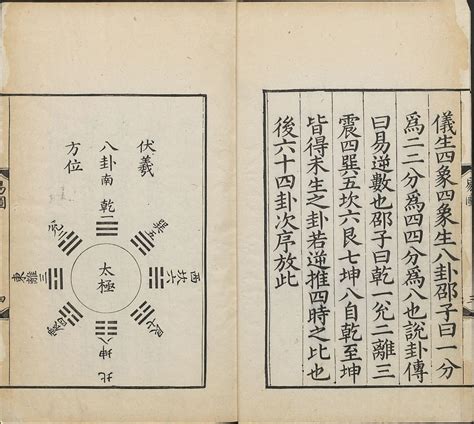 儀生四象四象生八卦邵子曰一分
為二二分為四四分為八也說卦傳
曰易逆數也邵子曰乾一兌二離三
震四巽五坎六艮七坤八自乾至坤
皆得未生之卦若逆推四時之比也
後六十四卦次序放此
伏羲
八卦
方位
南
乾一
兌二
巽五
東
離三
太極
西
坎六
震四
艮七
坤八
北
易圖
三
四